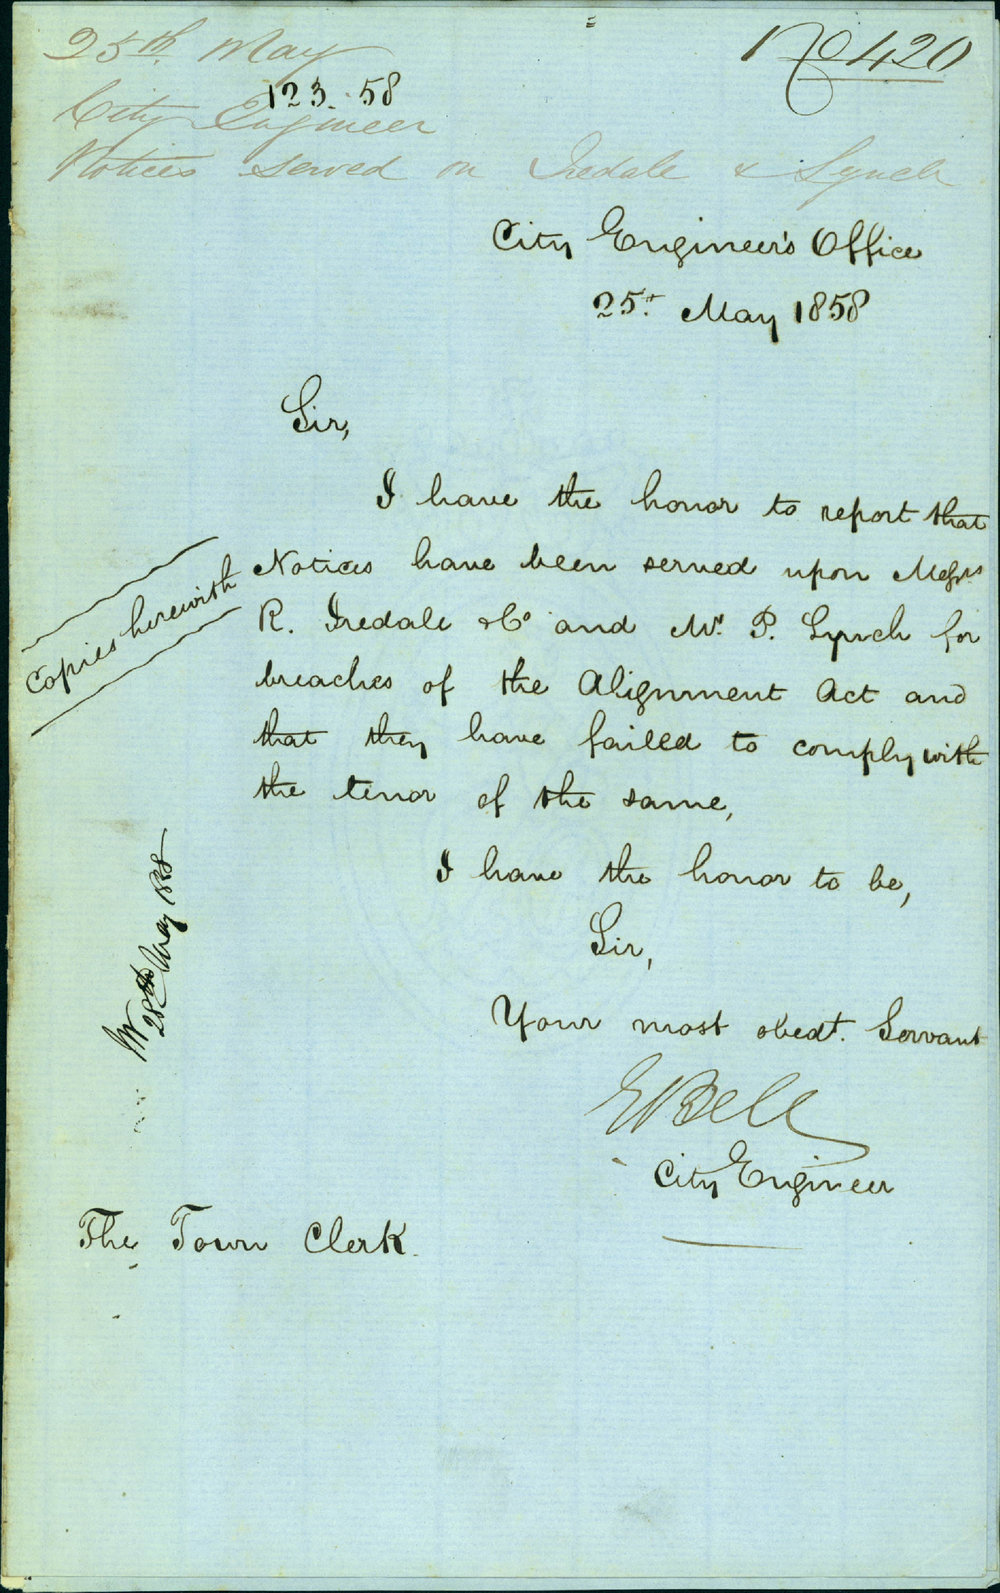 25th. May
No 420
123. 58
City Engineer
Notices served on Iredale & Lynch
City Engineer's Office
25t. May 1858
Sir,
I have the honor to report that
Notices have been served upon Messrs
R. Iredale & Co and Mr. P. Lynch for
breaches of the Alignment Act and
that they have failed to comply with
the tenor of the same,
Copies herewith
I have the honor to be,
Sir,
Your most obedt. Servant
EBell
City Engineer
28th May 1858
The Town Clerk.